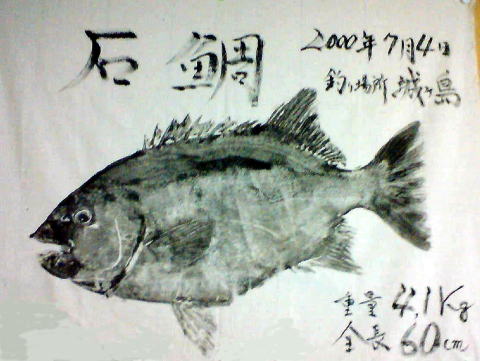 石鯛
2000年7月4日
釣り場所 城ヶ島
重量 4.1Kg
全長 60cm